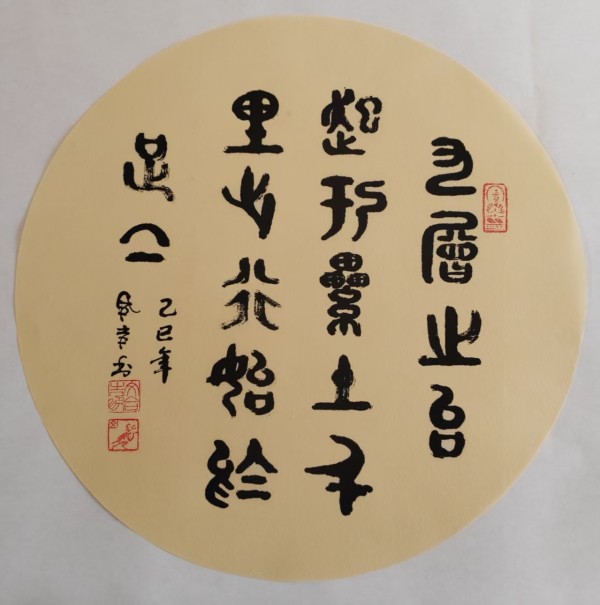 九層之台
起於纍土千
里之行始於
足下
乙巳年